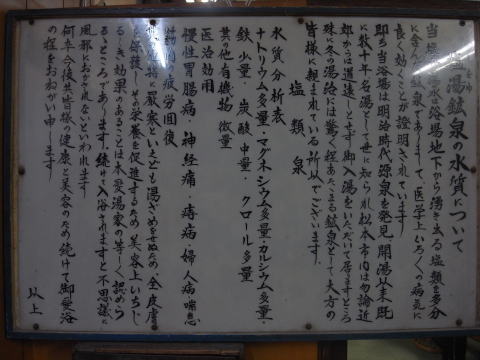 塩湯鉱泉の水質について
当操業鉱泉は浴場地下から湧き出る塩類を多分
に含んだ鉱泉であります。医学上いろ〱の病気に
良く効くことが証明されています
即ち当浴場は明治時代源泉を発見 開湯以来既
に数十年名湯として世に知られ松本市内は勿論近
郊からは遠遠しとせず御入湯をいただいて居りますところ
殊に冬の湯治には驚く程あたゝまる鉱泉として大方の
皆様に親まれている所以でございます、
塩類泉
水質分析表
ナトリウム多量・マグネシウム多量・カルシウム多量・
鉄少量・炭酸中量・クロール多量
其の他有機物 微量
医治効用
慢性胃腸病・神経痛・痔病・婦人病 喘息
筋肉 疲労回復
特に厳寒といえども湯ざめをせぬため、全皮膚
を保護し、その栄養を促進するため 美容上いちじ
るしき効果のあることは本愛湯家の等しく認めら
るゝところであります、続けて入浴されますと不思議に
風邪におかされないといわれます
何卒今後共皆様の健康と美容のため続けて御愛浴
の程をおねがい申します
以上